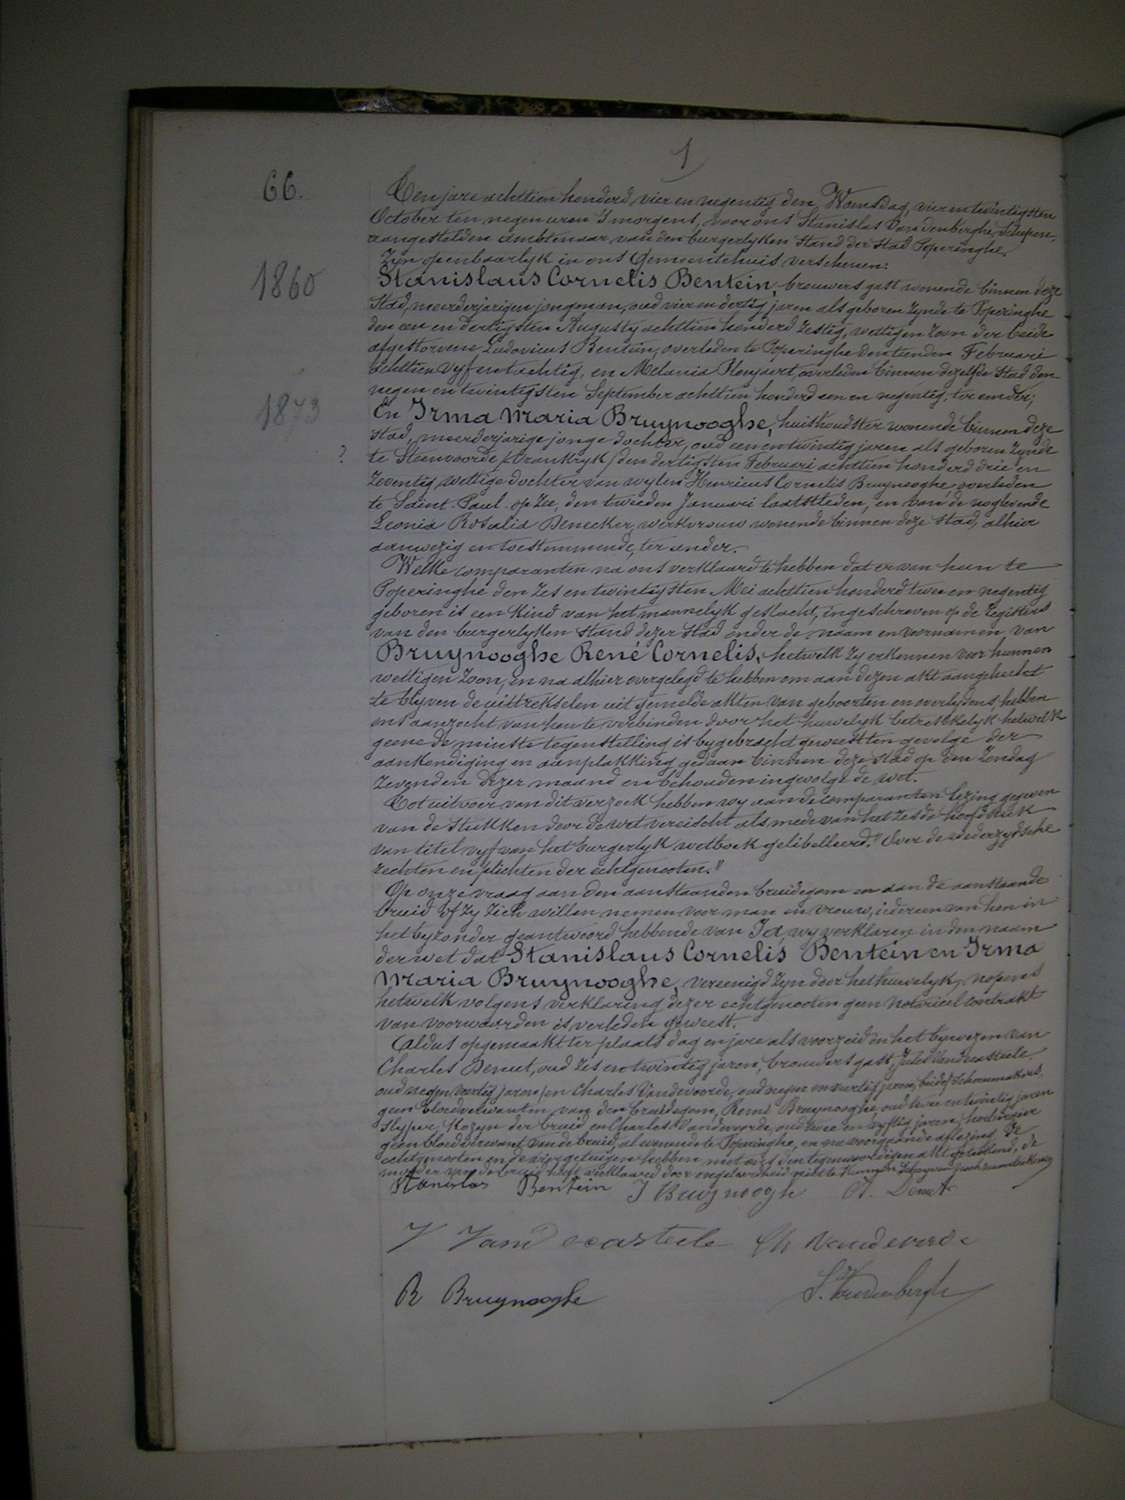 1
66.
Ten jare achttien honderd vier en negentig den Woensdag, vier en twintigsten
October ten negen uren 's morgens, voor ons Stanislas Vandenberghe, Schepen,
aangestelden ambtenaar van den burgerlyken Stand der Stad Poperinghe,
Zyn openbaarlyk in ons Gemeentehuis verschenen:
1860
Stanislaus Cornelis Bentein, brouwers gast wonende binnen deze
Stad, meerderjarigen jongman, oud vier en dertig jaren als geboren zynde te Poperinghe
den een en dertigsten Augusty achttien honderd zestig, wettigen zoon der beide
afgestorvene Ludovicus Bentein, overleden te Poperinghe den tienden Februari
achttien vyf en tachtig, en Melania Pleujaert, overleden binnen dezelfde Stad den
negen en twintigsten September achttien honderd een en negentig, ter eender;
1873
En Irma Maria Bruynooghe, huishoudster wonende binnen deze
Stad, meerderjarige jonge dochter, oud een en twintig jaren als geboren zynde
? te Steenvoorde (Frankryk) den dertigsten Februari achttien honderd drie en
Zeventig wettige dochter van wylen Henricus Cornelis Bruynooghe, overleden
te Saint Paul op Zee, den tweeden Januari laatstleden, en van de noglevende
Leonia Rosalia Denecker, werkvrouw wonende binnen deze Stad, alhier
aanwezig en toestemmende, ter ander.
Welke comparanten na ons verklaard te hebben dat er van hun te
Poperinghe den zes en twintigsten Mei achttien honderd twee en negentig
geboren is een kind van het mannelyk geslacht, ingeschreven op de registers
van den burgerlyken Stand dezer Stad onder de naam en voornamen van
Bruynooghe René Cornelis, hetwelk zy erkennen voor hunnen
wettigen zoon, en na alhier overgelegd te hebben om aan dezen akt aangehecht
te blyven de uittrekselen uit gemelde akten van geboorten en overlydens, hebben
ons aanzocht van hun te verbinden door het huwelyk betrekkelyk hetwelk
geene de minste tegenstelling is bygebracht geweest ten gevolge der
aankondiging en aanplakking gedaan binnen deze Stad op den Zondag
Zevenden dezer maand en behouden ingevolge de wet.
Tot uitvoer van dit verzoek hebben wy aan de comparanten lezing gegeven
van de Stukken door de wet vereischt als mede van het zesde hoofdstuk
van titel vyf van het burgerlyk wetboek gelibelleerd: "Over de wederzydsche
rechten en plichten der echtgenooten."
Op onze vraag aan den aanstaanden bruidegom en aan de aanstaande
bruid of zy zich willen nemen voor man en vrouw, iedereen van hen in
het byzonder geantwoord hebbende van Ja, wy verklaren in den naam
der wet dat Stanislaus Cornelis Bentein en Irma
Maria Bruynooghe, vereenigd zyn door het huwelyk, nopens
hetwelk volgens verklaring dezer echtgenooten geen notarieel contrakt
van voorwaarden is verleden geweest.
Aldus opgemaakt ter plaats dag en jare als voorzeid in het bywezen van
Charles Demeut, oud zes en twintig jaren, brouwers gast, Jules Vandecasteele
oud negen veertig jaren, en Charles Vandevoorde, oud negen en veertig jaren, beide schoenmakers,
geen bloedverwanten van den bruidegom, René Bruynooghe, oud twee en twintig jaren
kozyn der bruid en Charles Vandevoorde, oud twee en vyftig jaren, herbergier
geen bloedverwant van de bruid, al wonende te Poperinghe, en na voorgaande aflezing, de
echtgenooten en de vier getuigen hebben met ons den tegenwoordigen akt geteekend, de
moeder van de bruid heeft verklaard door ongeleerdheid niet te kunnen
Stanislas Bentein I Bruynoogh
J Vandecasteele Ch Vandevoorde
R Bruynooghe S. Vandenberghe